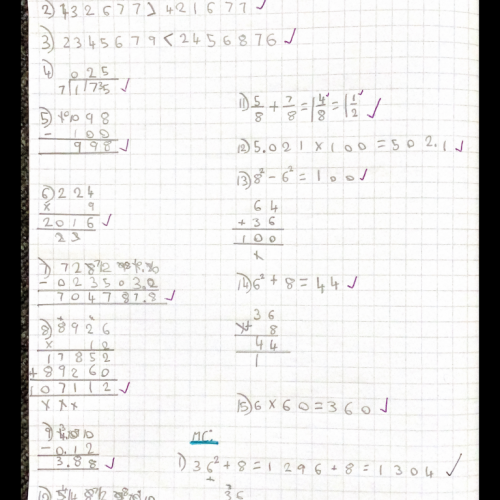 2) 432677 > 421677 ✓
3) 2345679 < 2456876 ✓
4) 025
7 1 7 5 ✓
5) 1098
- 100
998 ✓
6) 224
x 9
2016 ✓
23
- 023503.2
704787.8 ✓
8) 8926
x 12
17852
+ 89260
107112 ✓
x x x
- 0.12
3.88 ✓
11) 5/8 + 7/8 = 1 4/8 = 1 1/2 ✓
12) 5.021 x 100 = 502.1 ✓
13) 8² - 6² = 100 ✓
64
+ 36
100
14) 6² + 8 = 44 ✓
36
+ 8
44
1
15) 6 x 60 = 360 ✓
MC:
1) 36² + 8 = 1296 + 8 = 1304 ✓
36